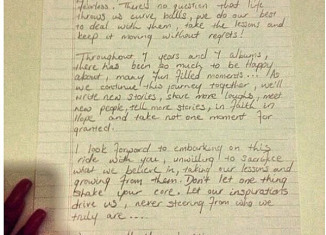 fearless. There's no question that life
throws us curve balls, we do our best
to deal with them, take the lessons and
keep it moving without regrets!
Throughout 7 years and 7 albums,
there has been so much to be happy
about, many fun filled moments... As
we continue this journey together, we'll
write new stories, share more laughs, meet
new people, tell more stories, in faith in
Hope and take not one moment for
granted.
I look forward to embarking on this
ride with you, unwilling to sacrifice
what we believe in, taking our lessons and
growing from them. Don't let one thing
shake your core. Let our inspirations
drive us, never steering from who we
truly are...